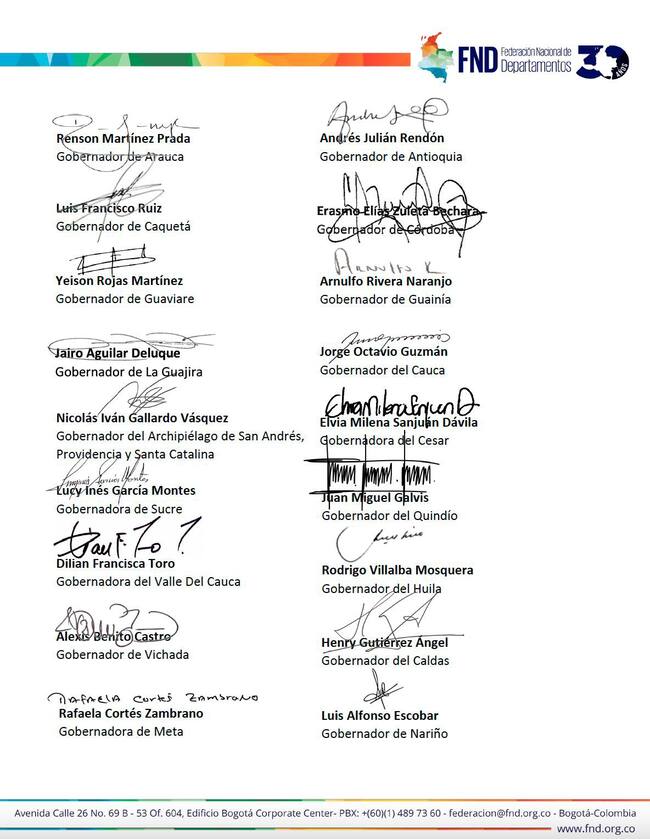 FND Federación Nacional de
Departamentos 30
AÑOS
Renson Martínez Prada
Gobernador de Arauca
Andrés Julián Rendón
Gobernador de Antioquia
Luis Francisco Ruiz
Gobernador de Caquetá
Erasmo Elías Zuleta Bechara
Gobernador de Córdoba
Yeison Rojas Martínez
Gobernador de Guaviare
Arnulfo R
Arnulfo Rivera Naranjo
Gobernador de Guainía
Jairo Aguilar Deluque
Gobernador de La Guajira
Jorge Octavio Guzmán
Gobernador del Cauca
Nicolás Iván Gallardo Vásquez
Gobernador del Archipiélago de San Andrés,
Providencia y Santa Catalina
Elvia Milena Sanjuán Dávila
Gobernadora del Cesar
Lucy Inés García Montes
Gobernadora de Sucre
Juan Miguel Galvis
Gobernador del Quindío
Dilian Francisca Toro
Gobernadora del Valle Del Cauca
Rodrigo Villalba Mosquera
Gobernador del Huila
Alexis Benito Castro
Gobernador de Vichada
Henry Gutiérrez Ángel
Gobernador del Caldas
Rafaela Cortés Zambrano
Rafaela Cortés Zambrano
Gobernadora de Meta
Luis Alfonso Escobar
Gobernador de Nariño
Avenida Calle 26 No. 69 B - 53 Of. 604, Edificio Bogotá Corporate Center- PBX: +(60)(1) 489 73 60 - federacion@fnd.org.co - Bogotá-Colombia
www.fnd.org.co